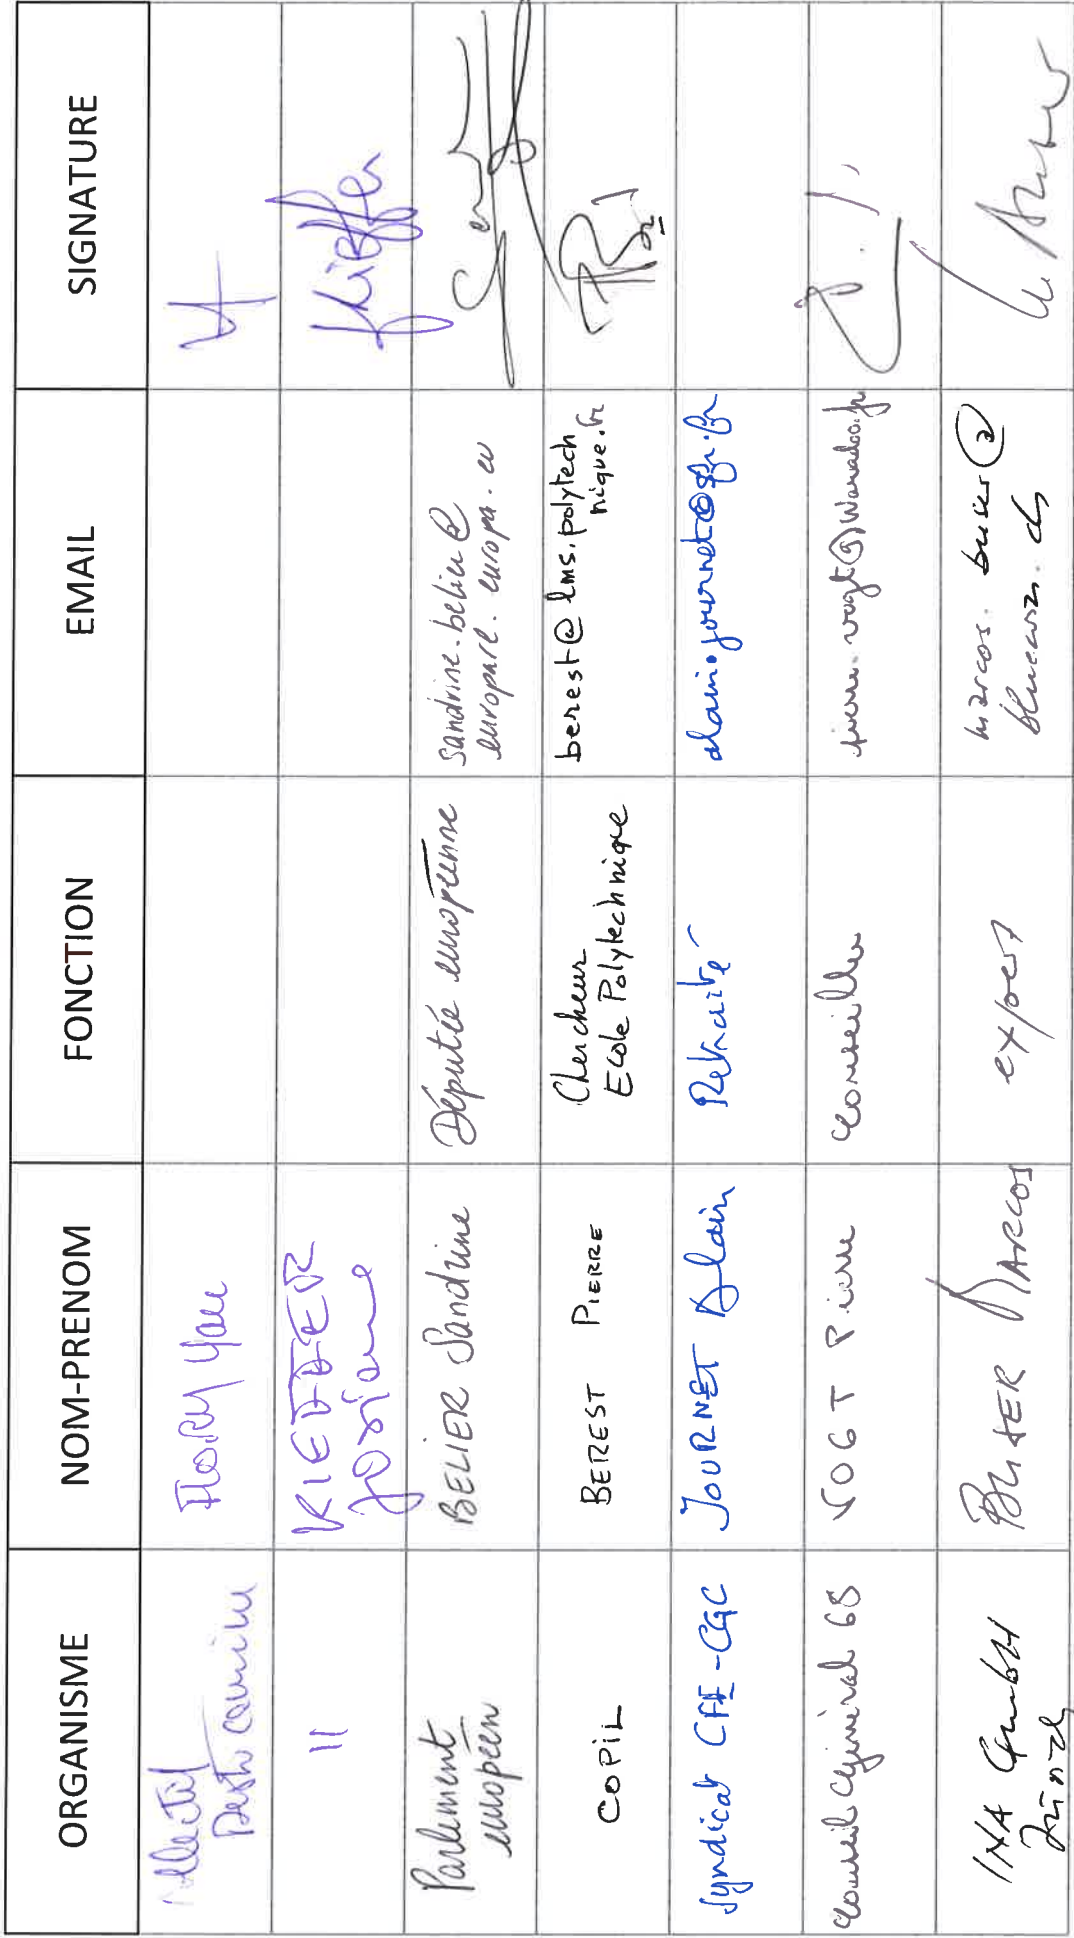 ORGANISME NOM-PRENOM FONCTION EMAIL SIGNATURE
Collectif
Destocamine
FLORY Yann
"
KIEFFER
Josiane
Kieffer
Parlement
européen
BELIER Sandrine
Députée européenne
sandrine.belier@
europarl.europa.eu
COPIL
BEREST PIERRE
Chercheur
Ecole Polytechnique
berest@lms.polytech
nique.fr
Syndicat CFE-CGC
JOURNET Alain
Retraité
alain.journet@sfr.fr
Conseil Général 68
VOGT Pierre
Conseiller
pierre.vogt@wanadoo.fr
GmbH
Zürich
BUSER MARCOS
expert
marcos.buser@
bluewin.ch